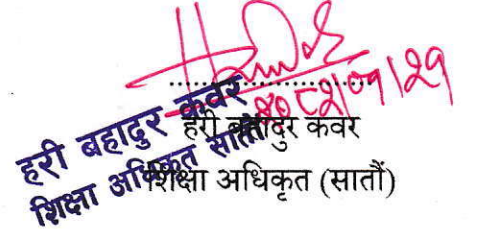 २०८२/०१/२१
हरी बहादुर कवर
शिक्षा अधिकृत सातौं
हरी बहादुर कवर
शिक्षा अधिकृत (सातौं)